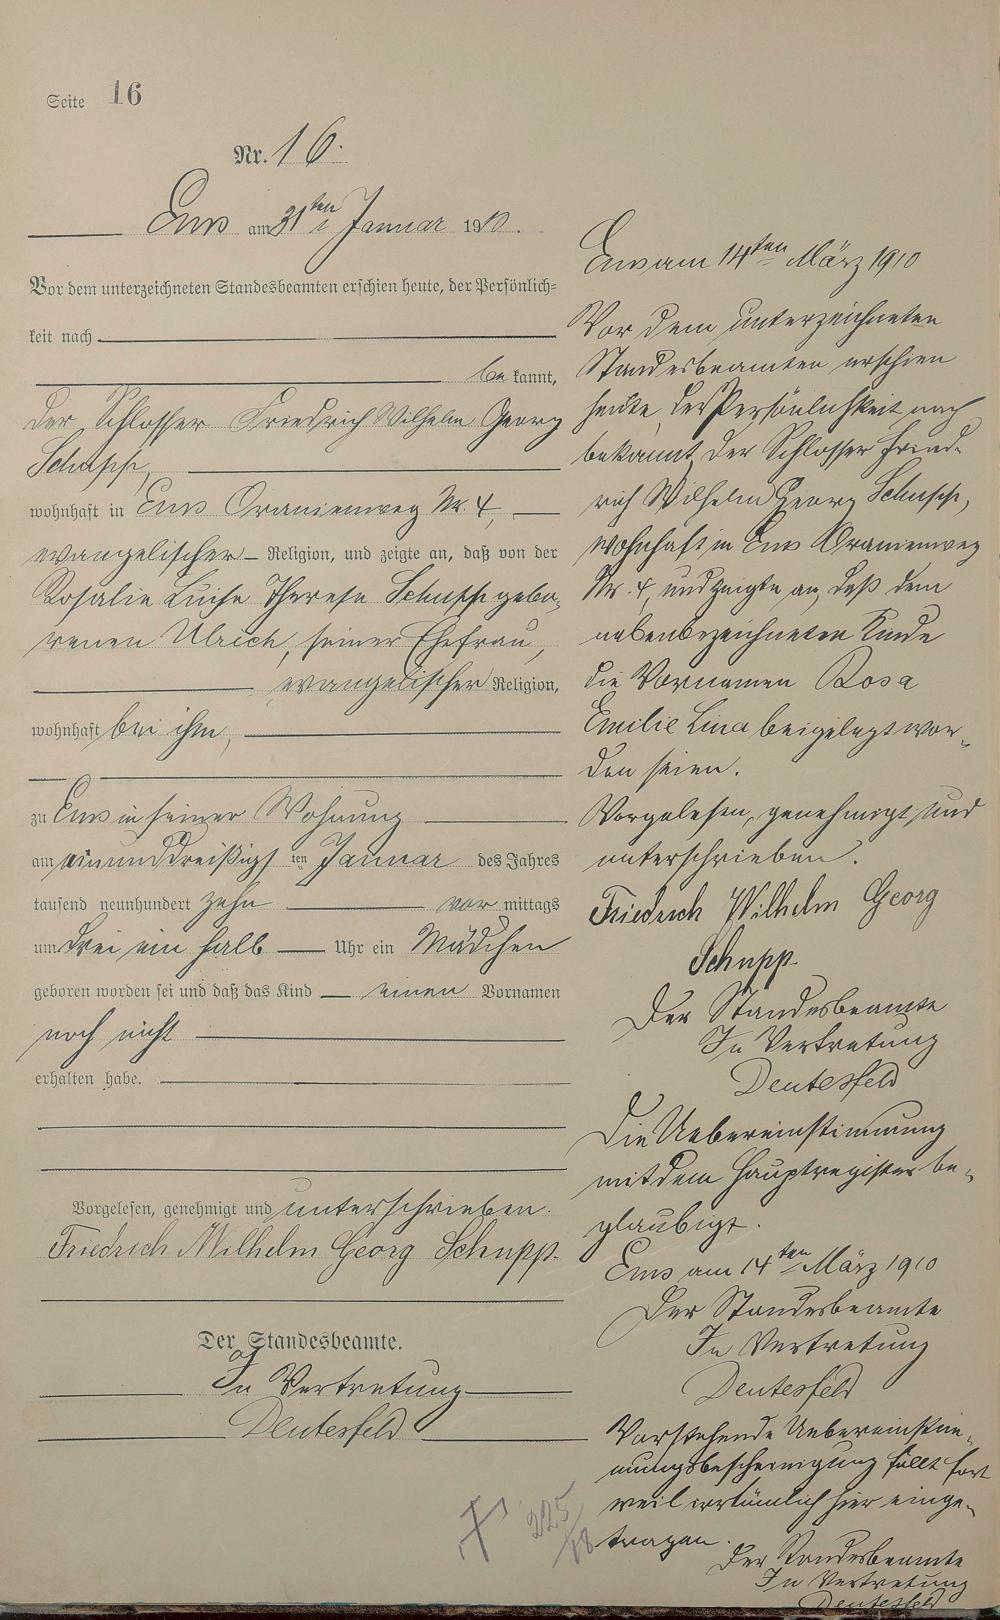 Seite 16
Nr. 16.
Ems am 31ten Januar 1910.
Vor dem unterzeichneten Standesbeamten erschien heute, der Persönlich=
keit nach
be kannt,
der Schlosser Friedrich Wilhelm Georg
Schupp,
wohnhaft in Ems Oranienweg Nr. 4,
evangelischer Religion, und zeigte an, daß von der
Rosalie Luise Therese Schupp gebo-
renen Ulrich, seiner Ehefrau,
evangelischer Religion,
wohnhaft bei ihm,
zu Ems in seiner Wohnung
am einunddreißigs ten Januar des Jahres
tausend neunhundert zehn vor mittags
um drei ein halb Uhr ein Mädchen
geboren worden sei und daß das Kind einen Vornamen
noch nicht
erhalten habe.
Vorgelesen, genehmigt und unterschrieben.
Friedrich Wilhelm Georg Schupp.
Der Standesbeamte.
In Vertretung
Deutesfeld
225/18
Ems am 14ten März 1910
Vor dem unterzeichneten
Standesbeamten erschien
heute, der Persönlichkeit nach
bekannt, der Schlosser Fried-
rich Wilhelm Georg Schupp,
wohnhaft in Ems Oranienweg
Nr. 4, und zeigte an, daß dem
nebenbezeichneten Kinde
die Vornamen Rosa
Emilie Lina beigelegt wor-
den seien.
Vorgelesen, genehmigt und
unterschrieben.
Friedrich Wilhelm Georg
Schupp
Der Standesbeamte
In Vertretung
Deutesfeld
Die Uebereinstimmung
mit dem Hauptregister be-
glaubigt.
Ems am 14ten März 1910
Der Standesbeamte
In Vertretung
Deutesfeld
Vorstehende Uebereinstim-
mungsbescheinigung fällt fort
weil irrtümlich hier einge-
tragen.
Der Standesbeamte
In Vertretung
Deutesfeld